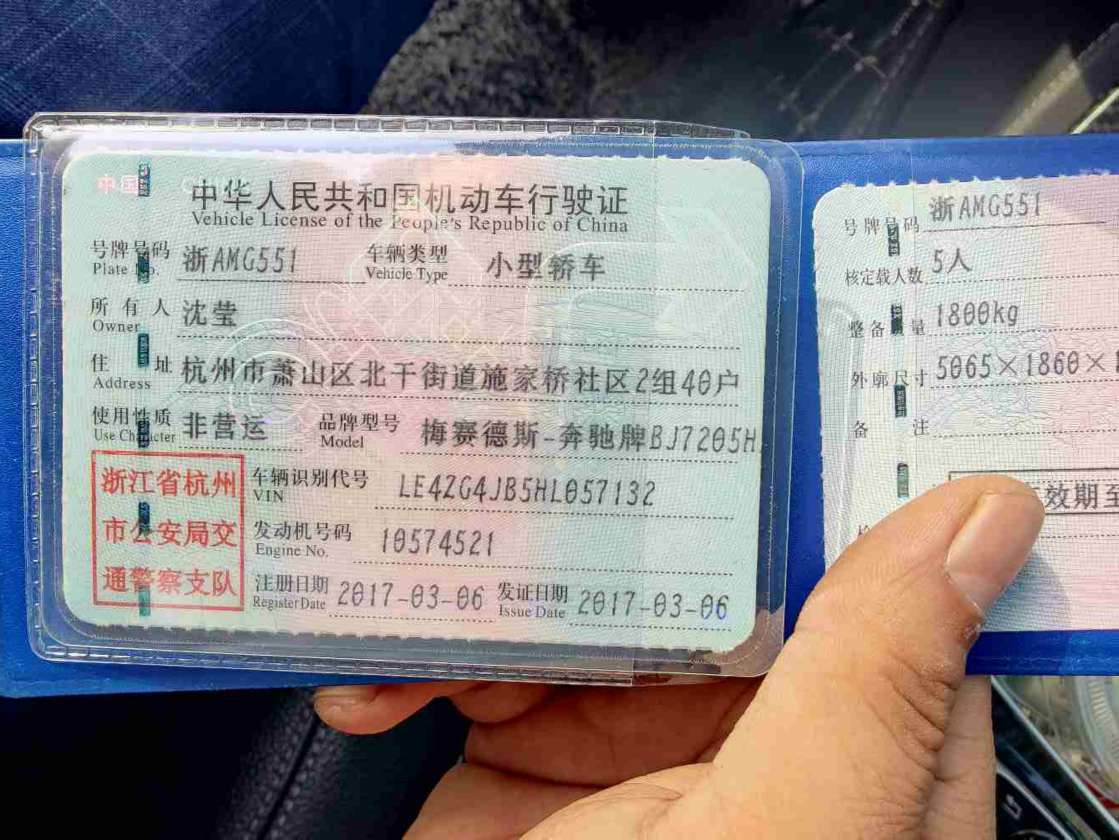 中国
中华人民共和国机动车行驶证
Vehicle License of the People's Republic of China
号牌号码 浙AMG551 车辆类型 小型轿车
Plate No. Vehicle Type
所有人 沈莹
Owner
住址 杭州市萧山区北干街道施家桥社区2组40户
Address
使用性质 非营运 品牌型号 梅赛德斯-奔驰牌BJ7205H
Use Character Model
浙江省杭州
市公安局交
通警察支队
车辆识别代号 LE4ZG4JB5HL057132
VIN
发动机号码 10574521
Engine No.
注册日期 2017-03-06 发证日期 2017-03-06
Register Date Issue Date
号牌号码 浙AMG551
核定载人数 5人
整备质量 1800kg
外廓尺寸 5065×1860×1
备注
效期至